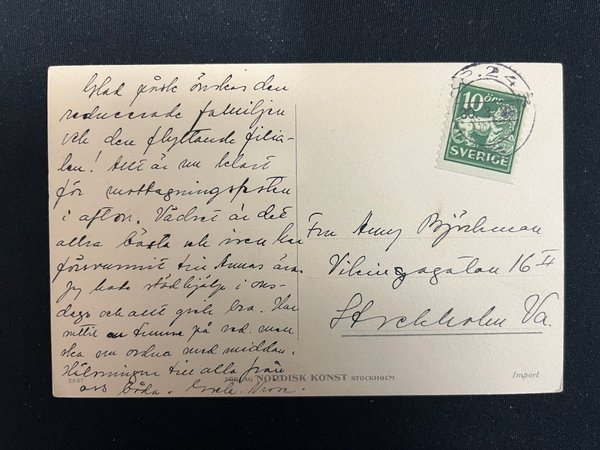 Glad påsk önskas den
reducerade familjen
och den flyttande filia-
len! Allt är nu klart
för mottagningsfesten
i afton. Vädret är det
allra bästa och isen har
försvunnit till Annas ära.
Jag hade städhjälp i ons-
dags och allt gick bra. Har
suttit en timme på red. man
ska nu ordna med middan.
Hälsningar till alla från
oss båda.
10 ÖRE
SVERIGE
Fru Amy Björkman
Vikingagatan 16 II
Stockholm Va.
2657
FÖRLAG NORDISK KONST STOCKHOLM
Import